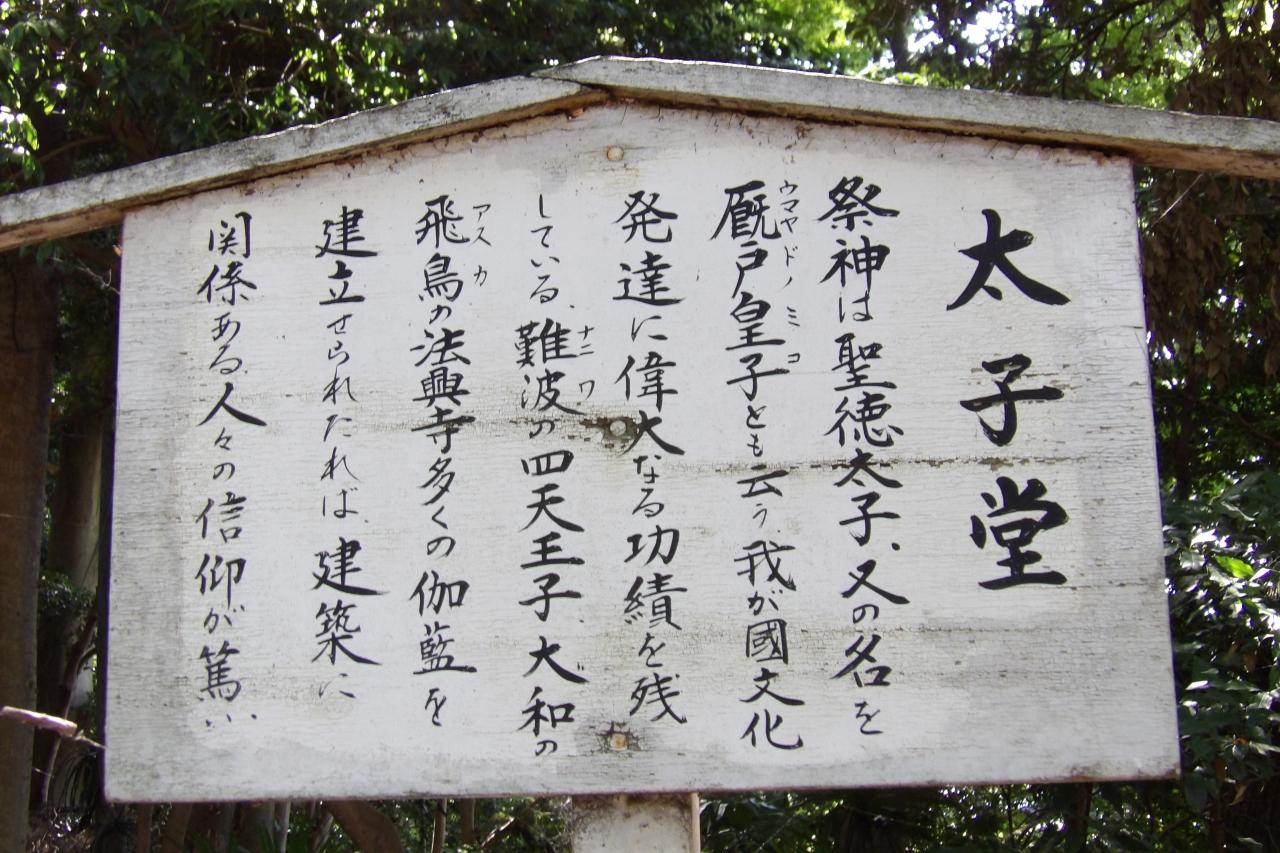 太子堂
祭神は聖徳太子、又の名を
厩戸皇子とも云う、我が國文化
ウマヤドノミコ
発達に偉大なる功績を残
している、難波の四天王子、大和の
ナニワ
飛鳥の法興寺多くの伽藍を
アスカ
建立せられたれば、建築に
関係ある人々の信仰が篤い